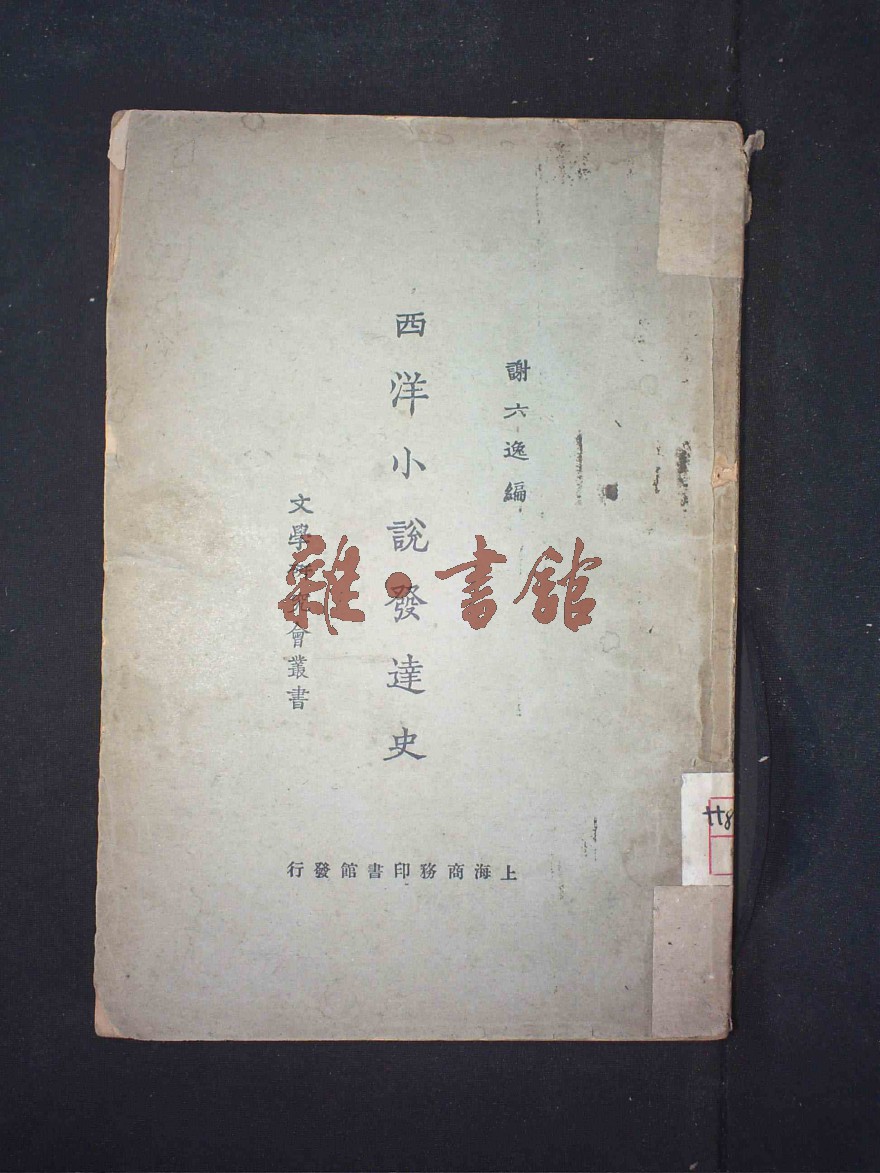 謝六逸編
西洋小說發達史
文學研究會叢書
上海商務印書館發行
雜·書館